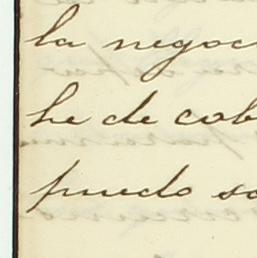 la negoc
he de cob
puedo sa